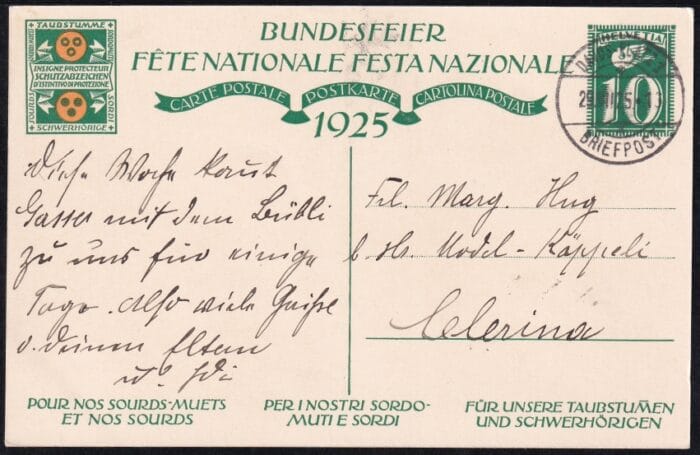 TAUBSTUMME
SOURDS-MUETS
SORDOMUTI
INSIGNE PROTECTEUR
SCHUTZABZEICHEN
DISTINTIVO DI PROTEZIONE
SOURDS
SORDI
SCHWERHÖRIGE
BUNDESFEIER
FÊTE NATIONALE FESTA NAZIONALE
CARTE POSTALE POSTKARTE CARTOLINA POSTALE
1925
HELVETIA
10
BRIEFPOST
Diese Woche kommt
Gasser mit dem Bübli
zu uns für einige
Tage. Also viele Grüsse
v. deinen Eltern
u.
Frl. Marg. Hug
b. Model-Käppeli
Celerina
POUR NOS SOURDS-MUETS
ET NOS SOURDS
PER I NOSTRI SORDO-
MUTI E SORDI
FÜR UNSERE TAUBSTUMMEN
UND SCHWERHÖRIGEN